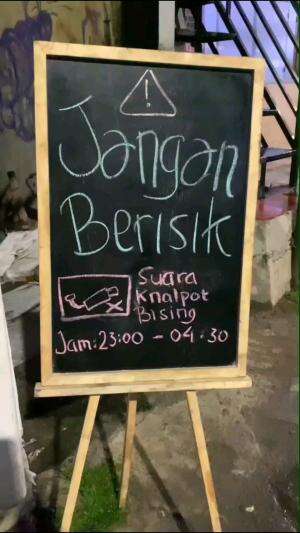 !
Jangan
Berisik
Suara
Knalpot
Bising
Jam: 23:00 - 04.30